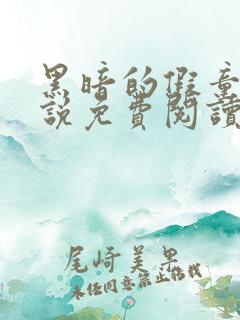 黑暗的假童
說免費閱讀
尾崎美里
未經同意禁止轉載